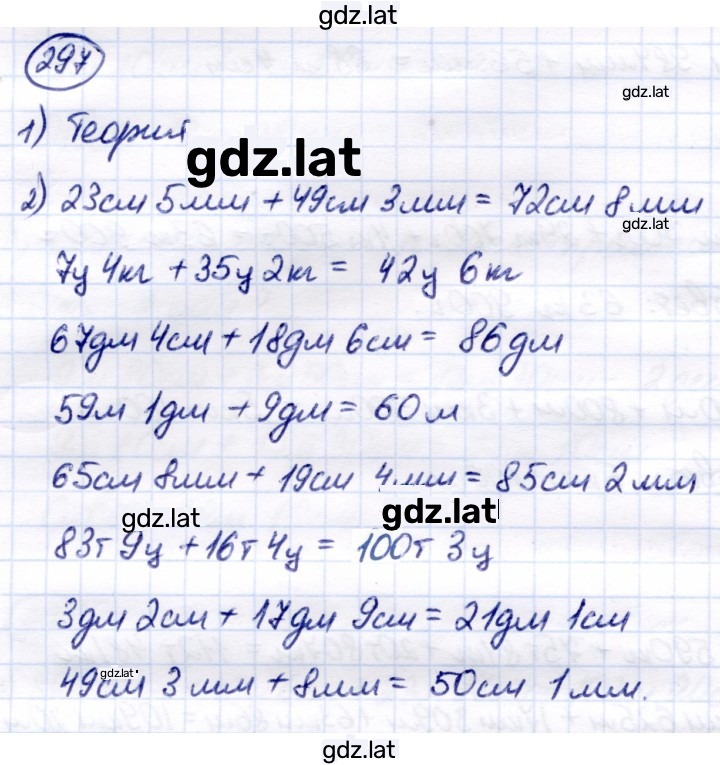 gdz.lat
297
gdz.lat
1) Теория
gdz.lat
2) 23см 5мм + 49см 3мм = 72см 8мм
gdz.lat
7ц 4кг + 35ц 2кг = 42ц 6кг
67дм 4см + 18дм 6см = 86дм
59м 1дм + 9дм = 60м
65см 8мм + 19см 4мм = 85см 2мм
gdz.lat
gdz.lat
83т 9ц + 16т 4ц = 100т 3ц
3дм 2см + 17дм 9см = 21дм 1см
gdz.lat
49см 3мм + 8мм = 50см 1мм.
gdz.lat